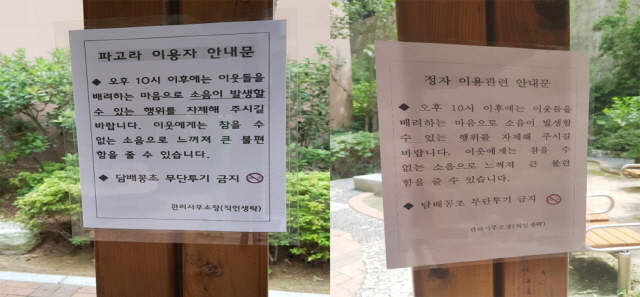 파고라 이용자 안내문
◆ 오후 10시 이후에는 이웃들을
배려하는 마음으로 소음이 발생할
수 있는 행위를 자제해 주시길
바랍니다. 이웃에게는 참을 수
없는 소음으로 느껴져 큰 불편
함을 줄 수 있습니다.
◆ 담배꽁초 무단투기 금지
관리사무소장(직인생략)
정자 이용관련 안내문
◆ 오후 10시 이후에는 이웃들을
배려하는 마음으로 소음이 발생할
수 있는 행위를 자제해 주시길
바랍니다. 이웃에게는 참을 수
없는 소음으로 느껴져 큰 불편
함을 줄 수 있습니다.
◆ 담배꽁초 무단투기 금지
관리사무소장(직인생략)